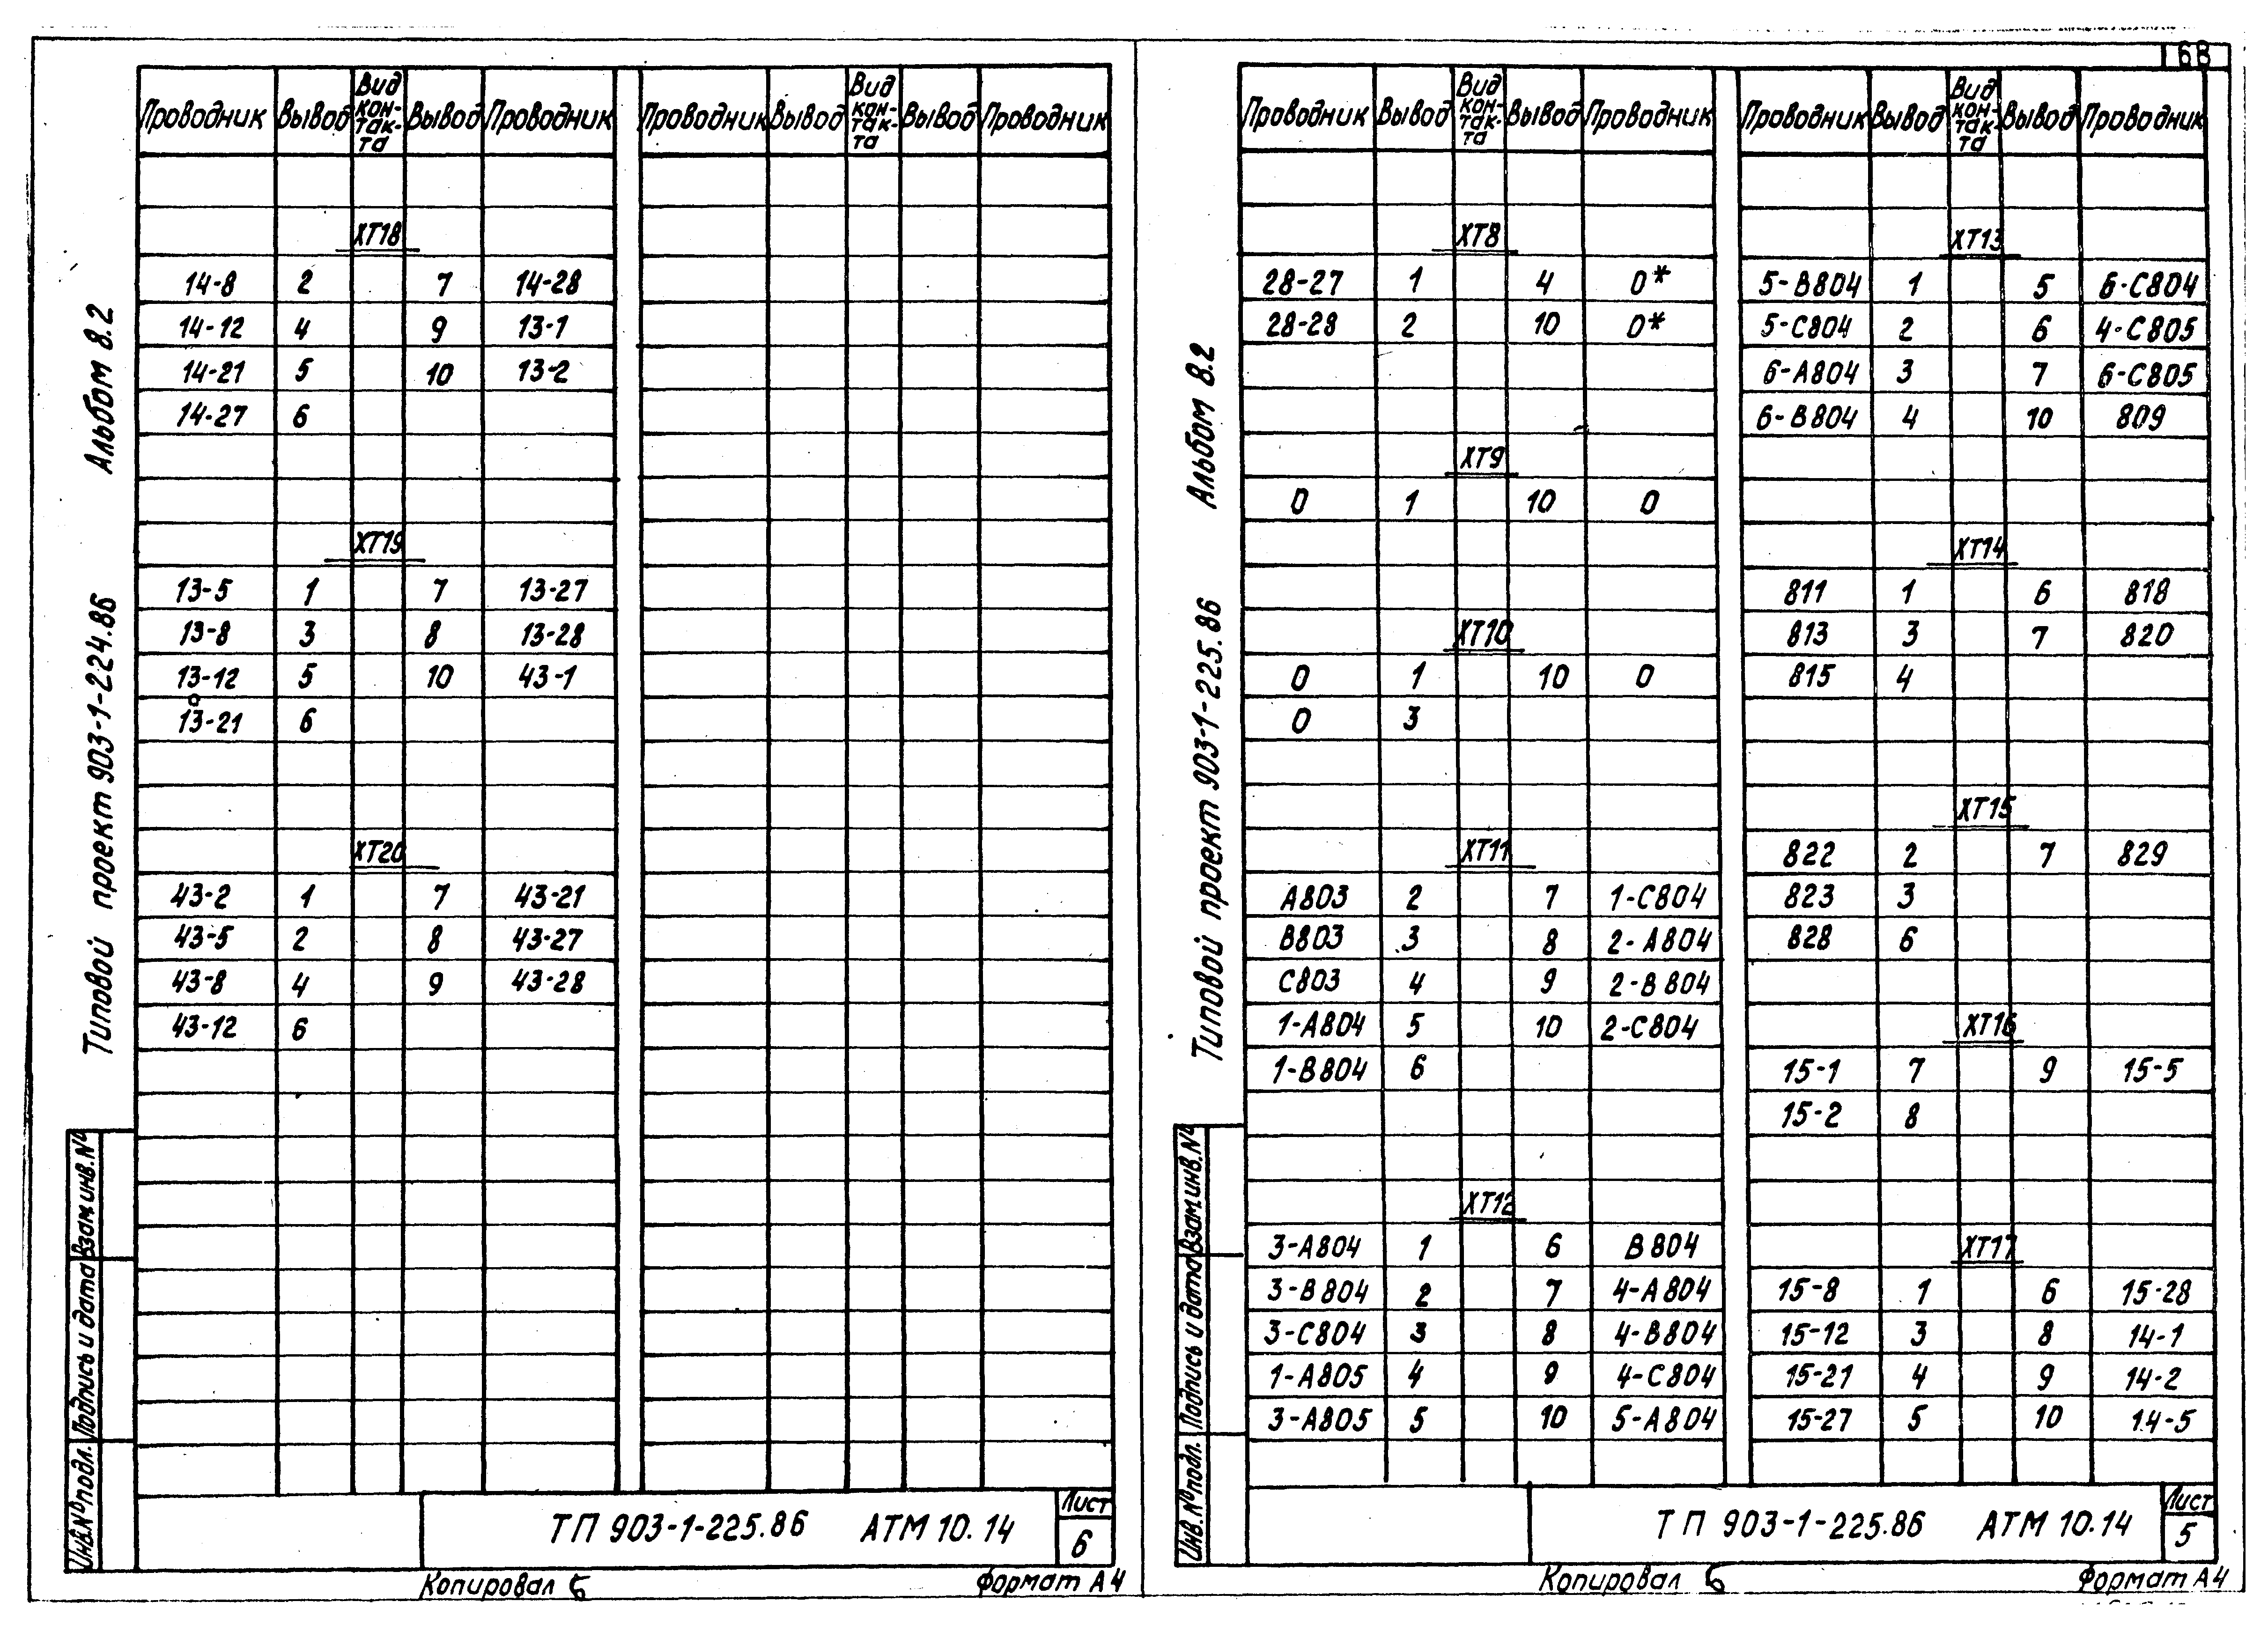 68
Проводник Вывод Вид контакта Вывод Проводник Проводник Вывод Вид контакта Вывод Проводник
ХТ18
14-8 2 7 14-28
14-12 4 9 13-1
14-21 5 10 13-2
14-27 6
ХТ19
13-5 1 7 13-27
13-8 3 8 13-28
13-12 5 10 43-1
13-21 6
ХТ20
43-2 1 7 43-21
43-5 2 8 43-27
43-8 4 9 43-28
43-12 6
Альбом 8.2
Типовой проект 903-1-224.86
Взам инв. №
Подпись и дата
Инв. № подл.
ТП 903-1-225.86 АТМ 10.14
Лист
6
Копировал
Формат А4
Проводник Вывод Вид контакта Вывод Проводник Проводник Вывод Вид контакта Вывод Проводник
ХТ8
28-27 1 4 0*
28-28 2 10 0*
ХТ9
0 1 10 0
ХТ10
0 1 10 0
0 3
ХТ11
А803 2 7 1-С804
В803 3 8 2-А804
С803 4 9 2-В804
1-А804 5 10 2-С804
1-В804 6
ХТ12
3-А804 1 6 В804
3-В804 2 7 4-А804
3-С804 3 8 4-В804
1-А805 4 9 4-С804
3-А805 5 10 5-А804
ХТ13
5-В804 1 5 6-С804
5-С804 2 6 4-С805
6-А804 3 7 6-С805
6-В804 4 10 809
ХТ14
811 1 6 818
813 3 7 820
815 4
ХТ15
822 2 7 829
823 3
828 6
ХТ16
15-1 7 9 15-5
15-2 8
ХТ17
15-8 1 6 15-28
15-12 3 8 14-1
15-21 4 9 14-2
15-27 5 10 14-5
Альбом 8.2
Типовой проект 903-1-225.86
Взам инв. №
Подпись и дата
Инв. № подл.
ТП 903-1-225.86 АТМ 10.14
Лист
5
Копировал
Формат А4